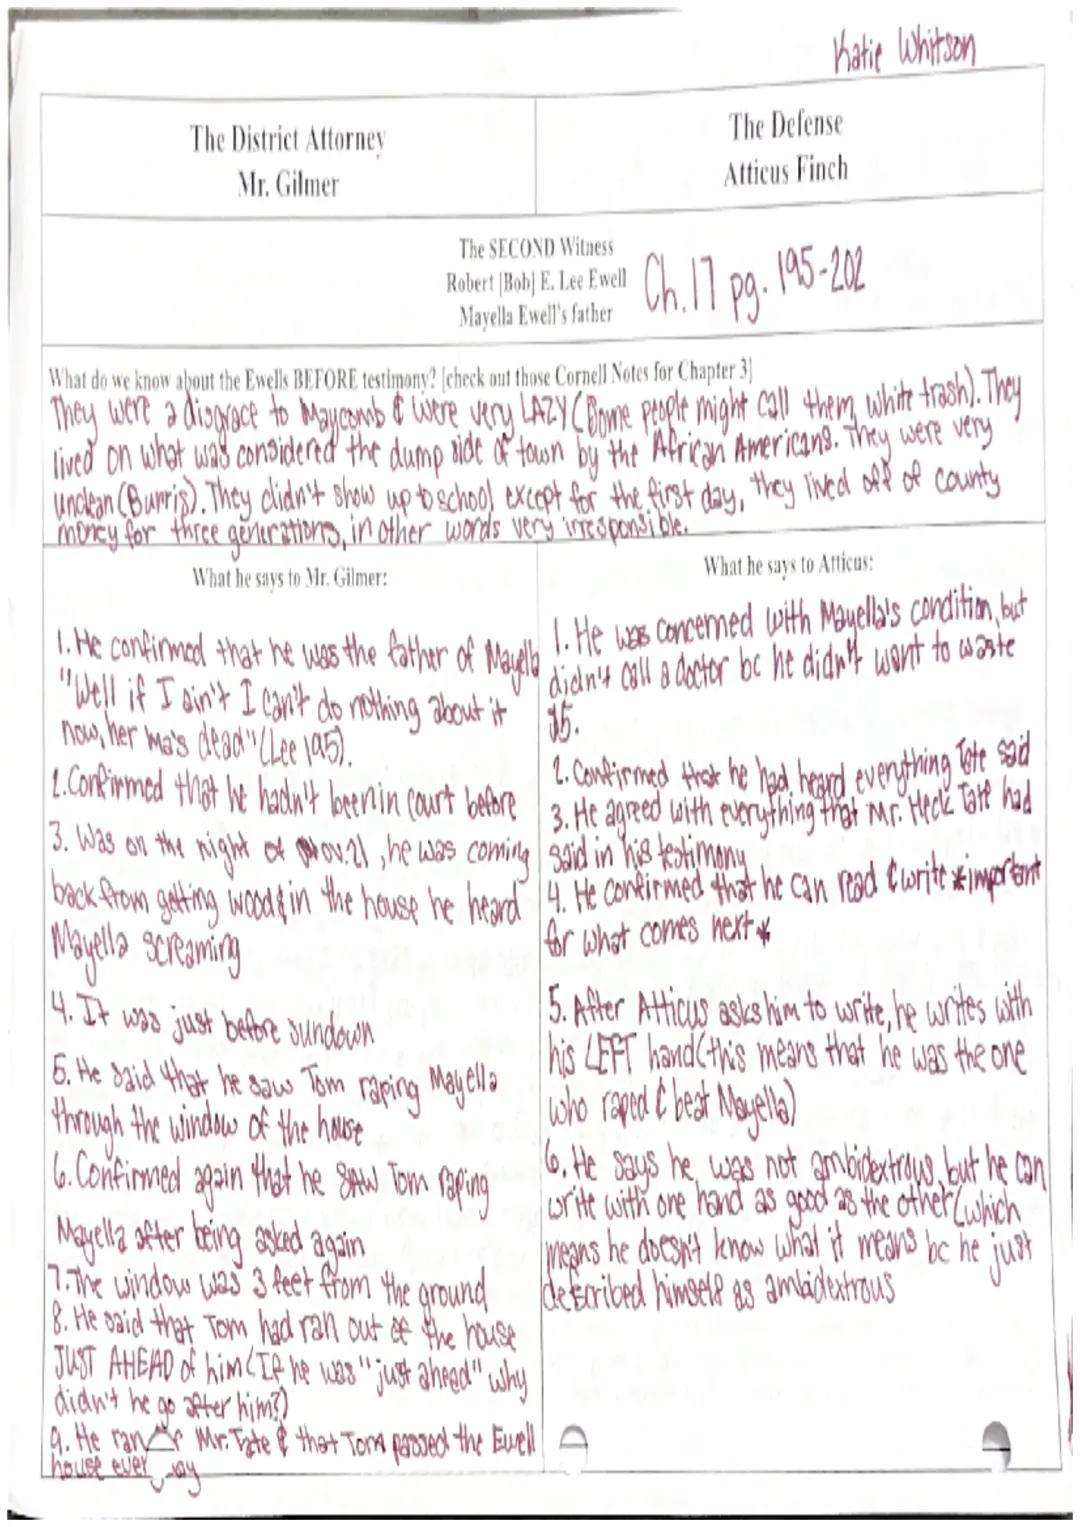 Katie Whitson
The District Attorney
Mr. Gilmer
The Defense
Atticus Finch
The SECOND Witness
Robert [Bob] E. Lee Ewell
Mayella Ewell's father
Ch.17 pg. 195-202
What do we know about the Ewells BEFORE testimony? [check out those Cornell Notes for Chapter 3]
They were a disgrace to Maycomb & were very LAZY (Some people might call them white trash). They
lived on what was considered the dump side of town by the African Americans. They were very
unclean (Burris). They didn't show up to school except for the first day, they lived off of county
money for three generations, in other words very irresponsible.
What he says to Mr. Gilmer:
1. He confirmed that he was the father of Mayella
"Well if I ain't I can't do nothing about it
now, her ma's dead" (Lee 195).
2. Confirmed that he hadn't been in court before
3. Was on the night of Nov. 21, he was coming
back from getting wood & in the house he heard
Mayella screaming
4. It was just before sundown
5. He said that he saw Tom raping Mayella
through the window of the house
6. Confirmed again that he saw Tom raping
Mayella after being asked again
7. The window was 3 feet from the ground
8. He said that Tom had ran out of the house
JUST AHEAD of him (If he was "just ahead" why
didn't he go after him?)
9. He ran Mr. Tate & that Tom passed the Ewell
house
What he says to Atticus:
1. He was concerned with Mayella's condition, but
didn't call a doctor bc he didn't want to waste
$5.
2. Confirmed that he had heard everything Tate said
3. He agreed with everything that Mr. Heck Tate had
said in his testimony
4. He confirmed that he can read & write *important
for what comes next*
5. After Atticus asks him to write, he writes with
his LEFT hand (this means that he was the one
who raped & beat Mayella)
6. He says he was not ambidextrous but he can
write with one hand as good as the other (which
means he doesn't know what it means bc he just
described himself as ambidextrous